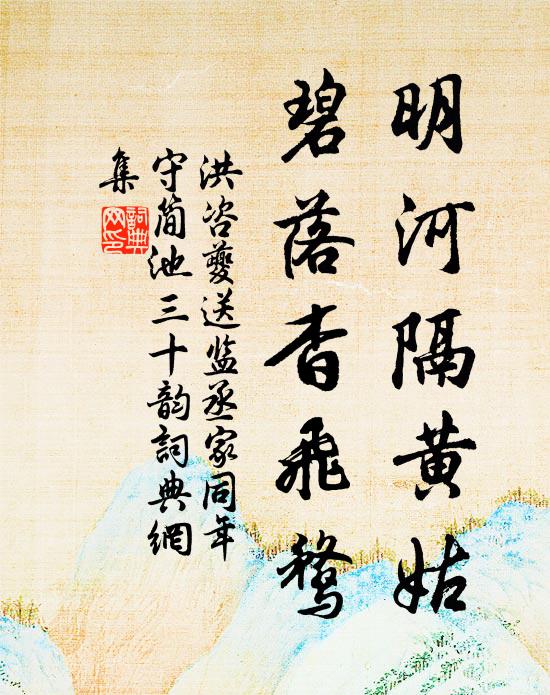 明河隔黄姑
碧落杳飛鶩
洪咨夔送监丞家同年
守简池三十韵詞典網
集
詞典网印